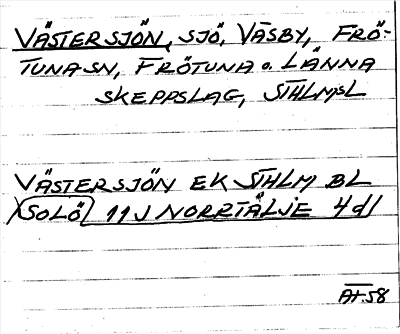 VÄSTERSJÖN, SJÖ, VÄSBY, FRÖ-
TUNA SN, FRÖTUNA o. LÄNNA
SKEPPSLAG, STHLMSL
VÄSTERSJÖN EK STHLM BL
SOLÖ 11J NORRTÄLJE 4d1
At.58